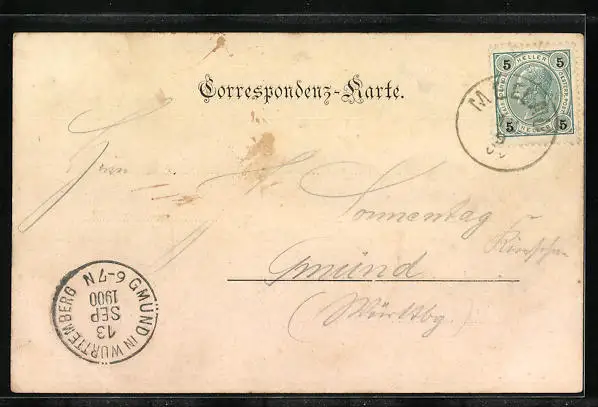 Correspondenz-Karte.
5 HELLER 5
5 HELLER 5
Sonnentag
Gmünd
(Württbg.)
GMÜND IN WÜRTTEMBERG
13
SEP
1900
6-7 N